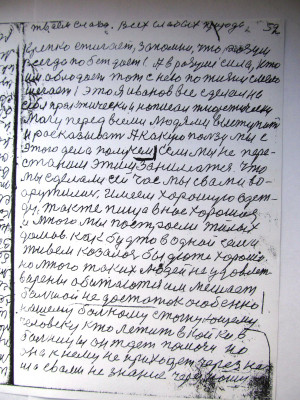 твоей слаба, всех слабых природа." 52
крепко стигает, запомни, что разум
всегда победает! А в разуме сила, кто
им обладает тот с нею по жизни смело
шегает! Это я Иванов все сделал на
себя практически и написал тищетельно
Могу перед всеми людями выступить
и рассказывать А какую пользу мы с
этого дела получим Если мы не пере-
станим этим заниматся. Что
мы сделали сейчас мы с вами во-
оружилис. имеем хорошую одеж-
ду, также пища в нас хорошая
и много мы построели жилых
домов. как будто в одной самих
живем казалос бы дюже хорошо.
но много таких людей не удовлет-
варены обижаются им мешает
болной не достаток особенно
нашему болному стогнующему
человеку кто лежить в койки. в
болници он ждет помочи но
она к нему не приходит через нас
и с вами не знание через нашу